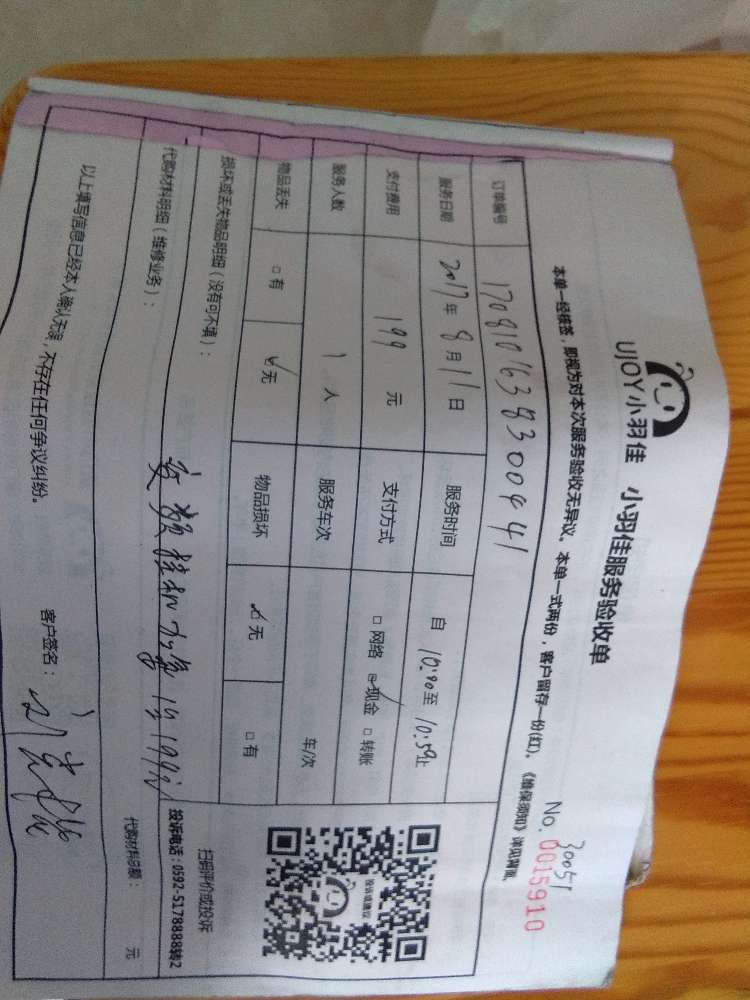 UJOY小羽佳 小羽佳服务验收单
No. 0015910
30051
本单一经核签，即视为对本次服务验收无异议。本单一式两份，客户留存一份(红)。《维保须知》详见背面。
订单编号 1708101638300441
服务日期 2017年8月11日 服务时间 自10:00至10:59止
支付费用 199 元 支付方式 □网络 ☑现金 □转账
服务人数 1 人 服务车次 车/次
物品丢失 □有 ☑无 物品损坏 ☑无 □有
损坏或丢失物品明细（没有可不填）：
代购材料明细（维修业务）：
代购材料总额： 元
以上填写信息已经本人确认无误，不存在任何争议纠纷。
客户签名：
投诉或建议
扫码评价或投诉
投诉电话：0592-5178888转2